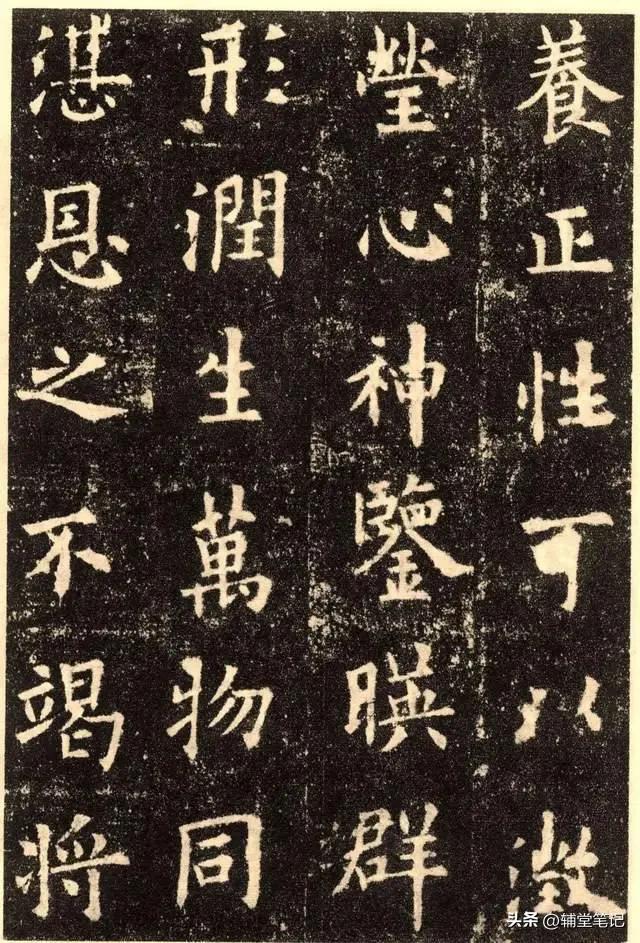 養正性可以澂
瑩心神鑒暎群
形潤生萬物同
湛恩之不竭将
头条 @辅堂笔记